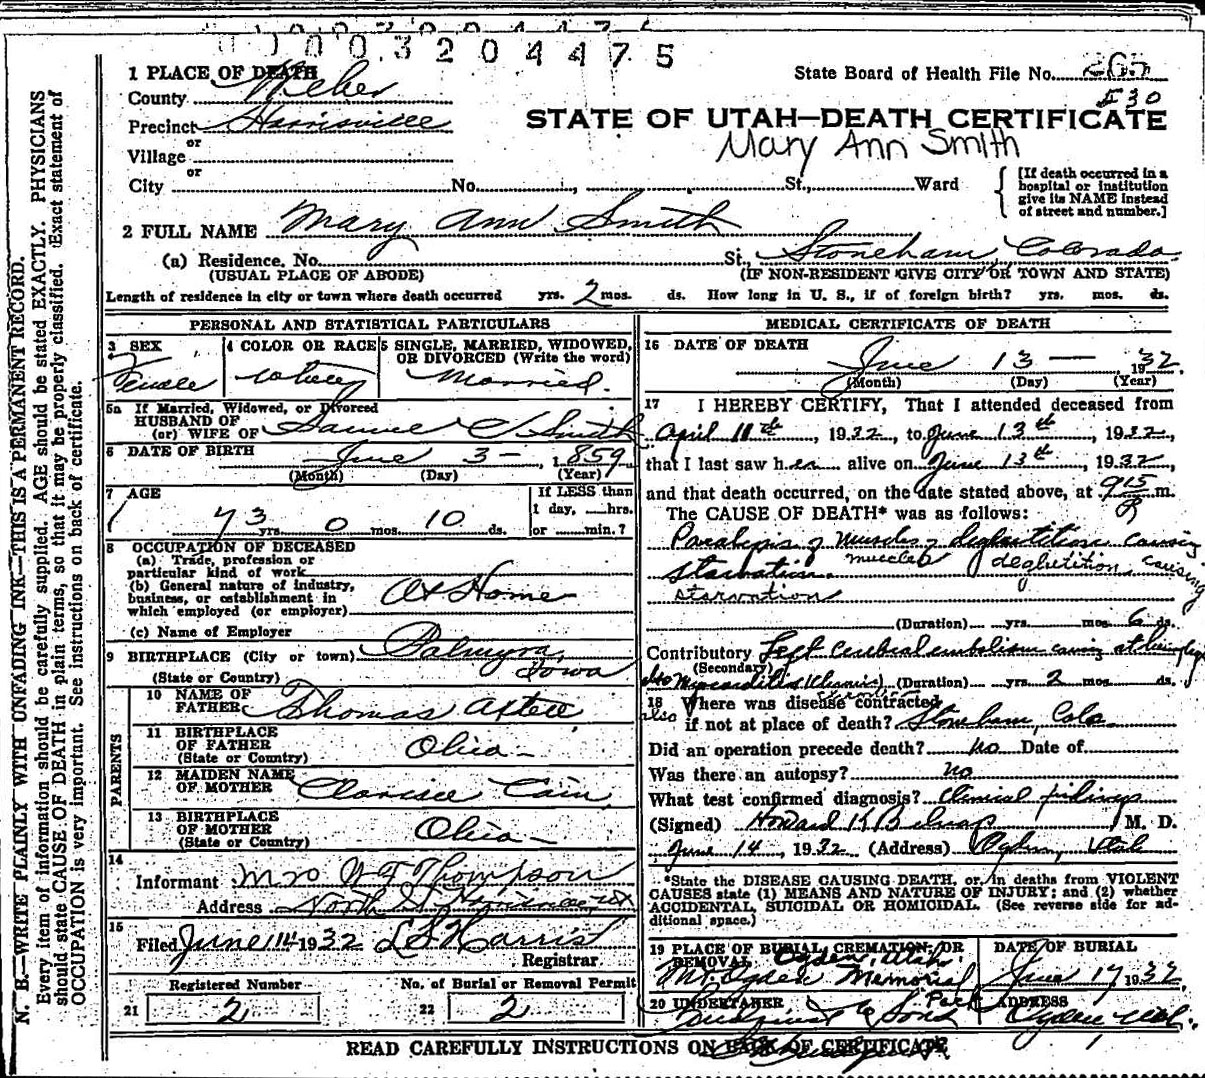 0003204475
1 PLACE OF DEATH
State Board of Health File No. 265
County Weber
I30
Precinct Harrisville
STATE OF UTAH—DEATH CERTIFICATE
or
Mary Ann Smith
Village
or
City No. , St., Ward
[If death occurred in a
hospital or institution
give its NAME instead
of street and number.]
2 FULL NAME Mary Ann Smith
(a) Residence, No. St., Stoneham, Colorado
(USUAL PLACE OF ABODE) (IF NON-RESIDENT GIVE CITY OR TOWN AND STATE)
Length of residence in city or town where death occurred yrs. 2 mos. ds. How long in U. S., if of foreign birth? yrs. mos. ds.
PERSONAL AND STATISTICAL PARTICULARS
3 SEX
Female
4 COLOR OR RACE
white
5 SINGLE, MARRIED, WIDOWED,
OR DIVORCED (Write the word)
Married.
5a If Married, Widowed, or Divorced
HUSBAND OF
(or) WIFE OF Samuel C Smith
6 DATE OF BIRTH June 3 — 1859
(Month) (Day) (Year)
7 AGE
73 yrs. 0 mos. 10 ds.
If LESS than
1 day, hrs.
or min.?
8 OCCUPATION OF DECEASED
(a) Trade, profession or
particular kind of work
(b) General nature of industry,
business, or establishment in
which employed (or employer)
At Home
(c) Name of Employer
9 BIRTHPLACE (City or town) Palmyra,
(State or Country) Iowa
PARENTS
10 NAME OF
FATHER Thomas Axtell
11 BIRTHPLACE
OF FATHER
(State or Country)
Ohio —
12 MAIDEN NAME
OF MOTHER Clarissa Cain
13 BIRTHPLACE
OF MOTHER
(State or Country)
Ohio —
14
Informant Mrs Thompson
Address North
15
Filed June 14 1932 L S Harris
Registrar
Registered Number
21 2
No. of Burial or Removal Permit
22 2
MEDICAL CERTIFICATE OF DEATH
16 DATE OF DEATH
June 13 — 1932.
(Month) (Day) (Year)
17 I HEREBY CERTIFY, That I attended deceased from
April 11th, 1932, to June 13th, 1932,
that I last saw her alive on June 13th, 1932,
and that death occurred, on the date stated above, at 9 15 P m.
The CAUSE OF DEATH* was as follows:
Paralysis of muscles of deglutition causing
starvation. muscles deglutition, causing
starvation
(Duration) yrs. mos. 6 ds.
Contributory Left cerebral embolism causing
(Secondary)
also Myocarditis (Chronic) (Duration) yrs. 2 mos. ds.
18 Where was disease contracted
also if not at place of death? Stoneham, Colo
Did an operation precede death? no Date of
Was there an autopsy? no
What test confirmed diagnosis? Clinical findings
(Signed) Howard K Belnap, M. D.
June 14, 1932 (Address) Ogden, Utah
*State the DISEASE CAUSING DEATH, or, in deaths from VIOLENT
CAUSES state (1) MEANS AND NATURE OF INJURY; and (2) whether
ACCIDENTAL, SUICIDAL OR HOMICIDAL. (See reverse side for ad-
ditional space.)
19 PLACE OF BURIAL, CREMATION OR
REMOVAL Ogden, Utah.
Mt. Ogden Memorial
Park
DATE OF BURIAL
June 17 1932
20 UNDERTAKER
& Sons
ADDRESS
Ogden, Utah.
READ CAREFULLY INSTRUCTIONS ON BACK OF CERTIFICATE
N. B.—WRITE PLAINLY WITH UNFADING INK—THIS IS A PERMANENT RECORD.
Every item of information should be carefully supplied. AGE should be stated EXACTLY. PHYSICIANS
should state CAUSE OF DEATH in plain terms, so that it may be properly classified. Exact statement of
OCCUPATION is very important. See instructions on back of certificate.